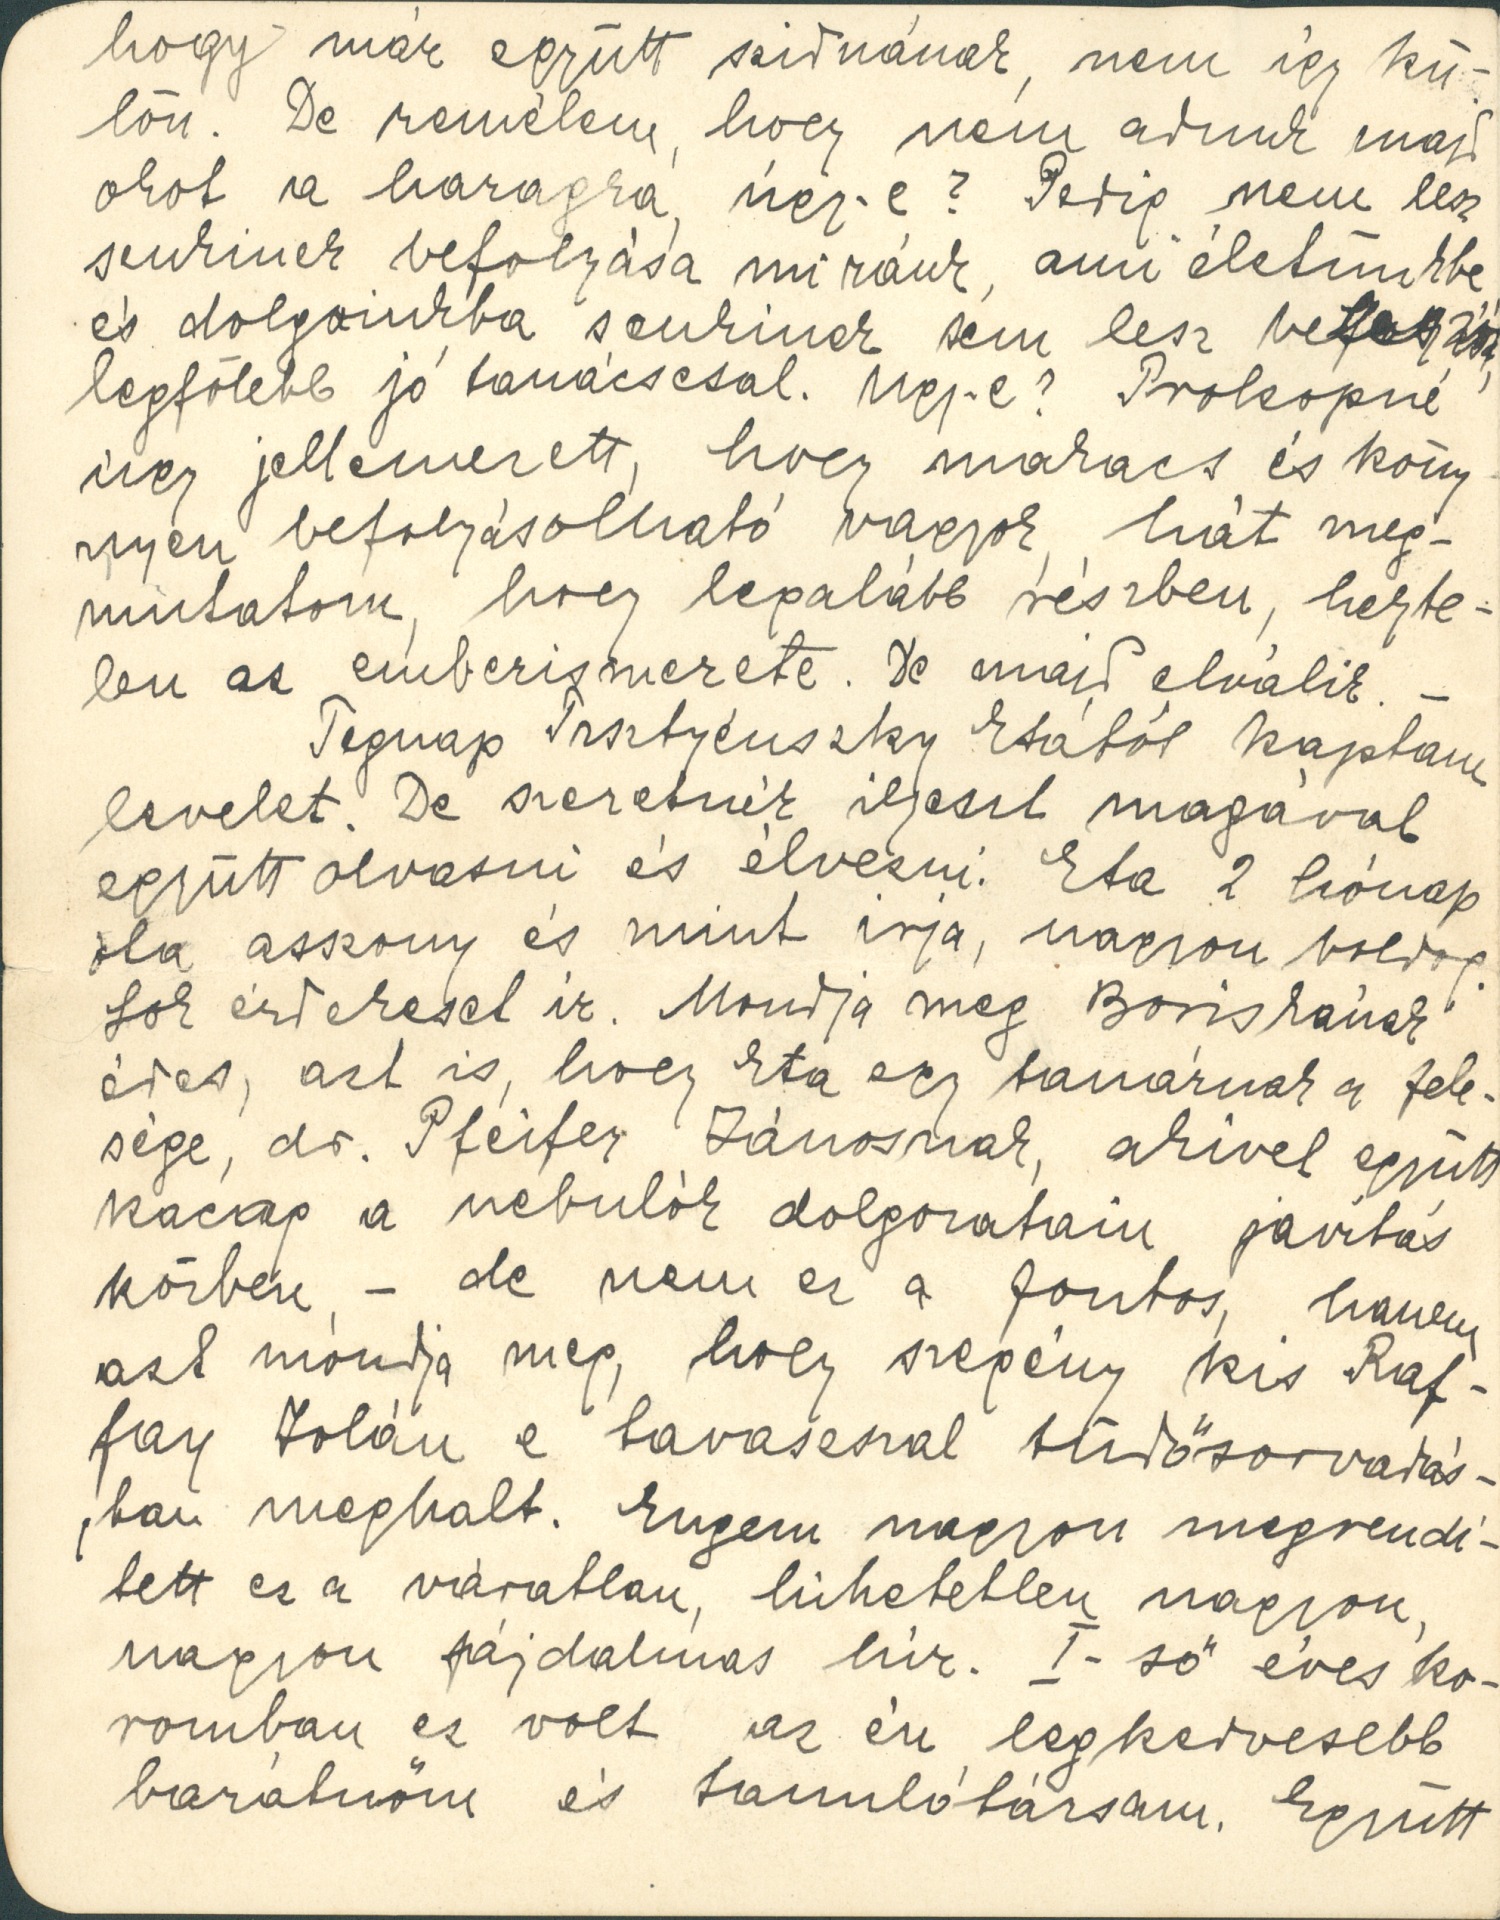 hogy már együtt szidnának, nem így kü-
lön. De remélem, hogy nem adunk majd
okot a haragra, úgy-e? Pedig nem lesz
senkinek befolyása mi ránk, a mi életünkbe
és dolgainkba senkinek sem lesz befolyása,
legfőlebb jó tanácscsal. Ugy-e? Prokopné
úgy jellemezett, hogy makacs és köny-
nyen befolyásolható vagyok, hát meg-
mutatom, hogy legalább részben, helyte-
len az emberismerete. De majd elválik. –
Tegnap Trsztyénszky Etától kaptam
levelet. De szeretnék ilyesmit magával
együtt olvasni és élvezni. Eta 2 hónap
óta asszony és mint irja, nagyon boldog.
Sok érdekeset ír. Mondja meg Boriskának
édes, azt is, hogy Eta egy tanárnak a fele-
sége, dr. Pfeifer Jánosnak, akivel együtt
kacag a nebulók dolgozatain javítás
közben, – de nem ez a fontos, hanem
azt mondja meg, hogy szegény kis Raf-
fay Zolán e tavaszszal tüdősorvadás-
ban meghalt. Engem nagyon megrendí-
tett ez a váratlan, hihetetlen nagyon,
nagyon fájdalmas hír. I-ső éves ko-
romban ez volt az én legkedvesebb
barátnőm és tanulótársam. Együtt